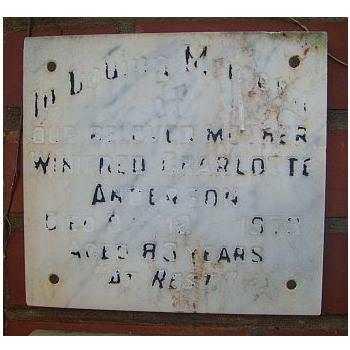 In Loving Memory
OF
OUR BELOVED MOTHER
WINIFRED CHARLOTTE
ANDERSON
AGED 83 YEARS
AT REST